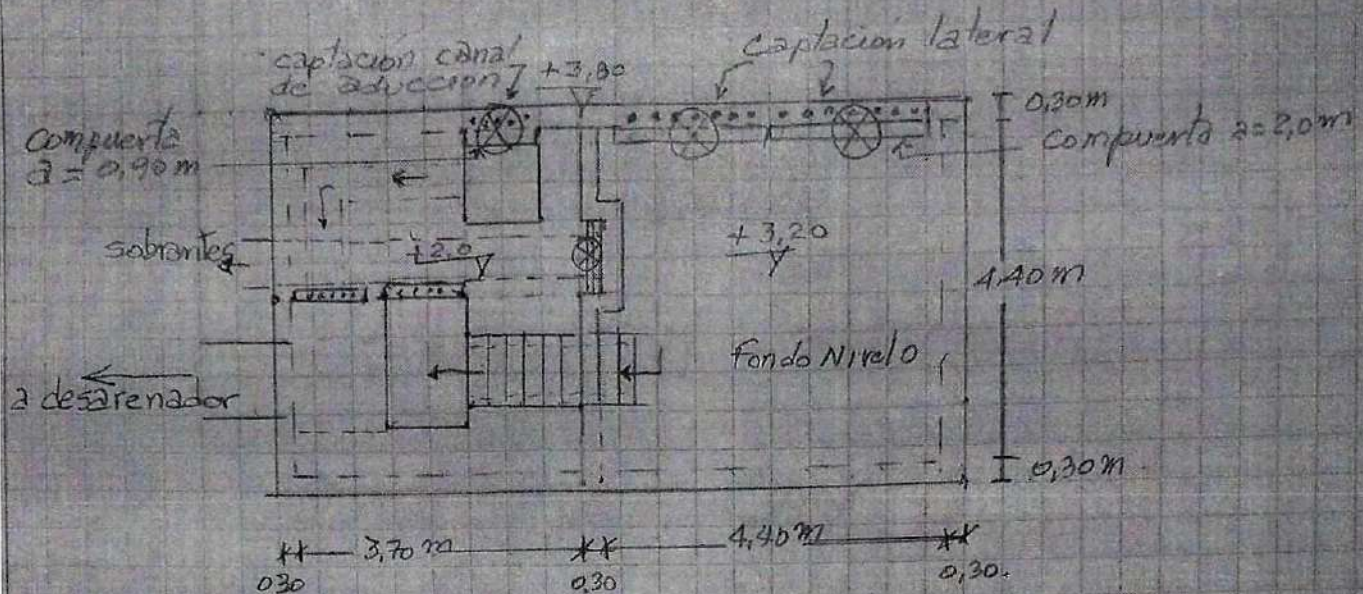 captación canal
de aducción
+3,80
captación lateral
0,30m
compuerta
a = 0,90m
compuerta a=2,0m
sobrantes
+2,0
+3,20
4,40m
Fondo Nivel 0
a desarenador
0,30m
3,70m
4,40m
0,30
0,30
0,30.